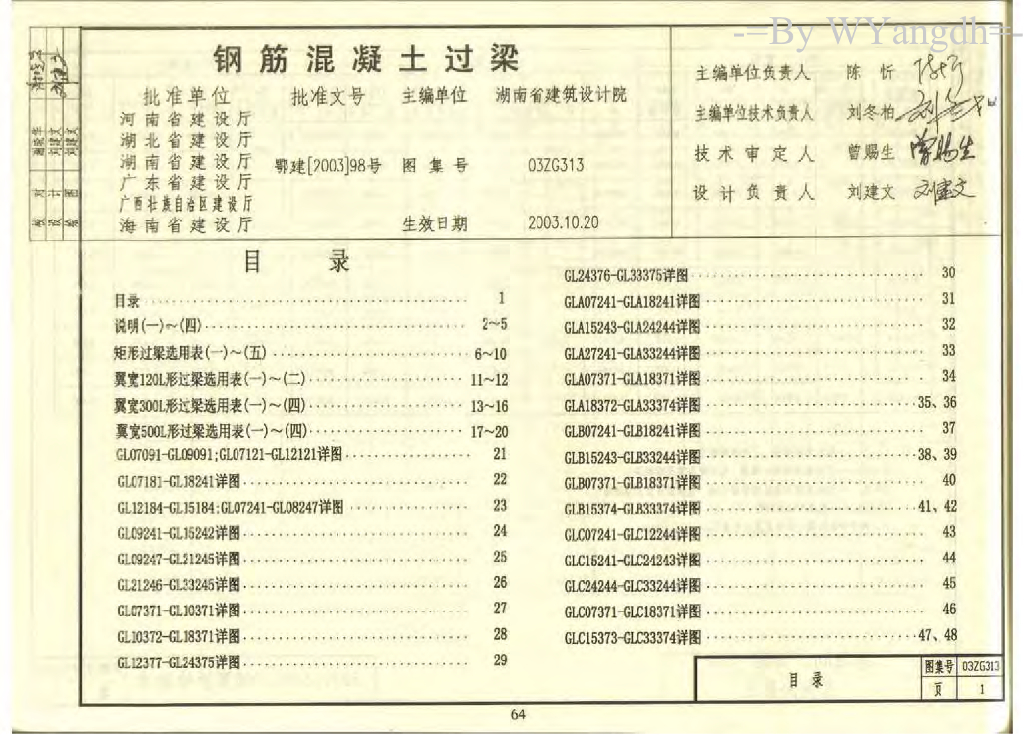 -=By WYangdh=-
钢筋混凝土过梁
批准单位 批准文号 主编单位 湖南省建筑设计院
河南省建设厅
湖北省建设厅
湖南省建设厅 鄂建[2003]98号 图集号 03ZG313
广东省建设厅
广西壮族自治区建设厅
海南省建设厅 生效日期 2003.10.20
主编单位负责人 陈忻
主编单位技术负责人 刘冬柏
技术审定人 曾赐生 曾赐生
设计负责人 刘建文 刘建文
目录
目录 1
说明(一)~(四) 2~5
矩形过梁选用表(一)~(五) 6~10
翼宽120L形过梁选用表(一)~(二) 11~12
翼宽300L形过梁选用表(一)~(四) 13~16
翼宽500L形过梁选用表(一)~(四) 17~20
GL07091-GL09091;GL07121-GL12121详图 21
GL07181-GL18241详图 22
GL12184-GL15184;GL07241-GL08247详图 23
GL09241-GL15242详图 24
GL09247-GL21245详图 25
GL21246-GL33245详图 26
GL07371-GL10371详图 27
GL10372-GL18371详图 28
GL12377-GL24375详图 29
GL24376-GL33375详图 30
GLA07241-GLA18241详图 31
GLA15243-GLA24244详图 32
GLA27241-GLA33244详图 33
GLA07371-GLA18371详图 34
GLA18372-GLA33374详图 35、36
GLB07241-GLB18241详图 37
GLB15243-GLB33244详图 38、39
GLB07371-GLB18371详图 40
GLB15374-GLB33374详图 41、42
GLC07241-GLC12244详图 43
GLC15241-GLC24243详图 44
GLC24244-GLC33244详图 45
GLC07371-GLC18371详图 46
GLC15373-GLC33374详图 47、48
目录 图集号 03ZG313
页 1
64